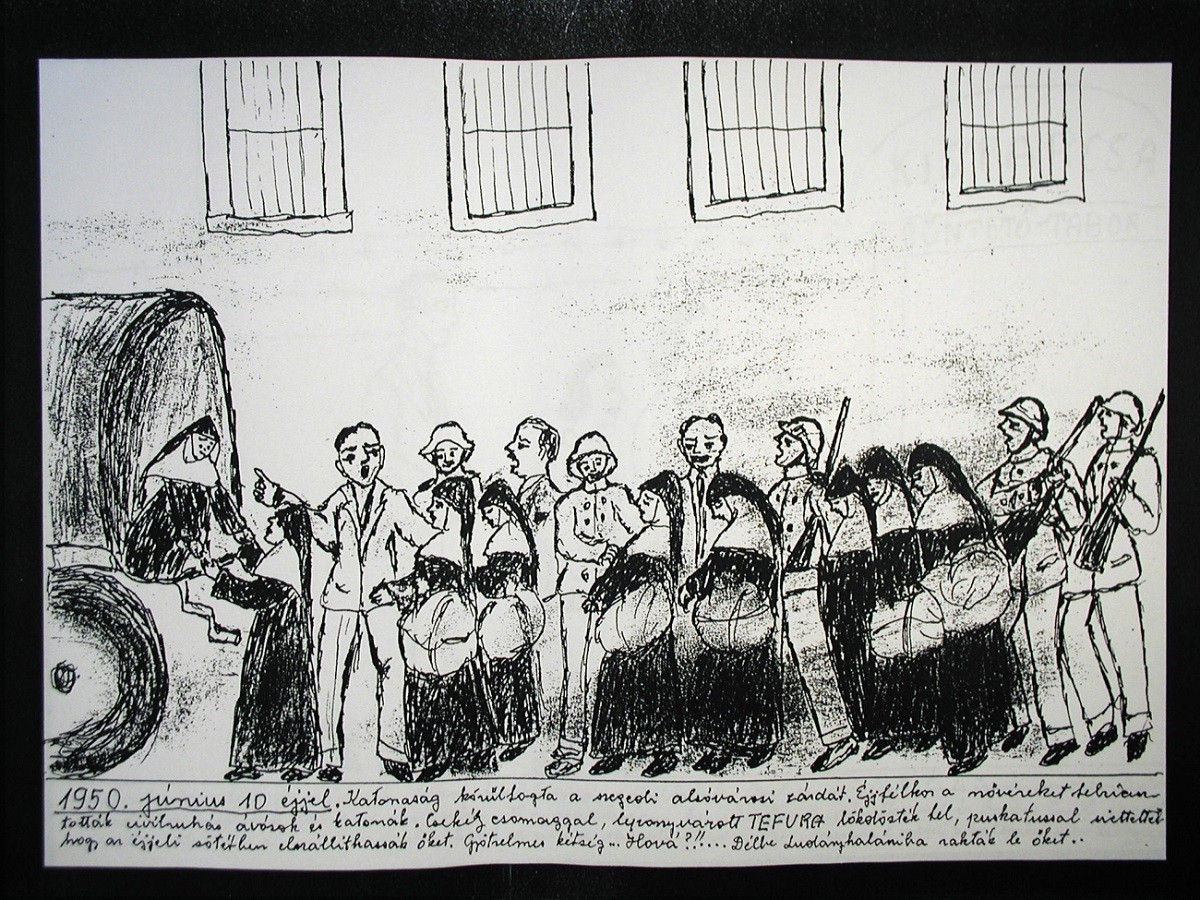 1950. június 10 éjjel. Katonaság körülfogta a szegedi alsóvárosi zárdát. Éjfélkor a nővéreket felrian-
tották civilruhás ávósok és katonák. Csekély csomaggal, leponyvázott TEFURA lökdösték fel, puskatussal siettettek
hogy az éjjeli sötétben elszállíthassák őket. Gyötrelmes kétség... Hová?!!.... Délbe Ludányhalásziba rakták le őket..